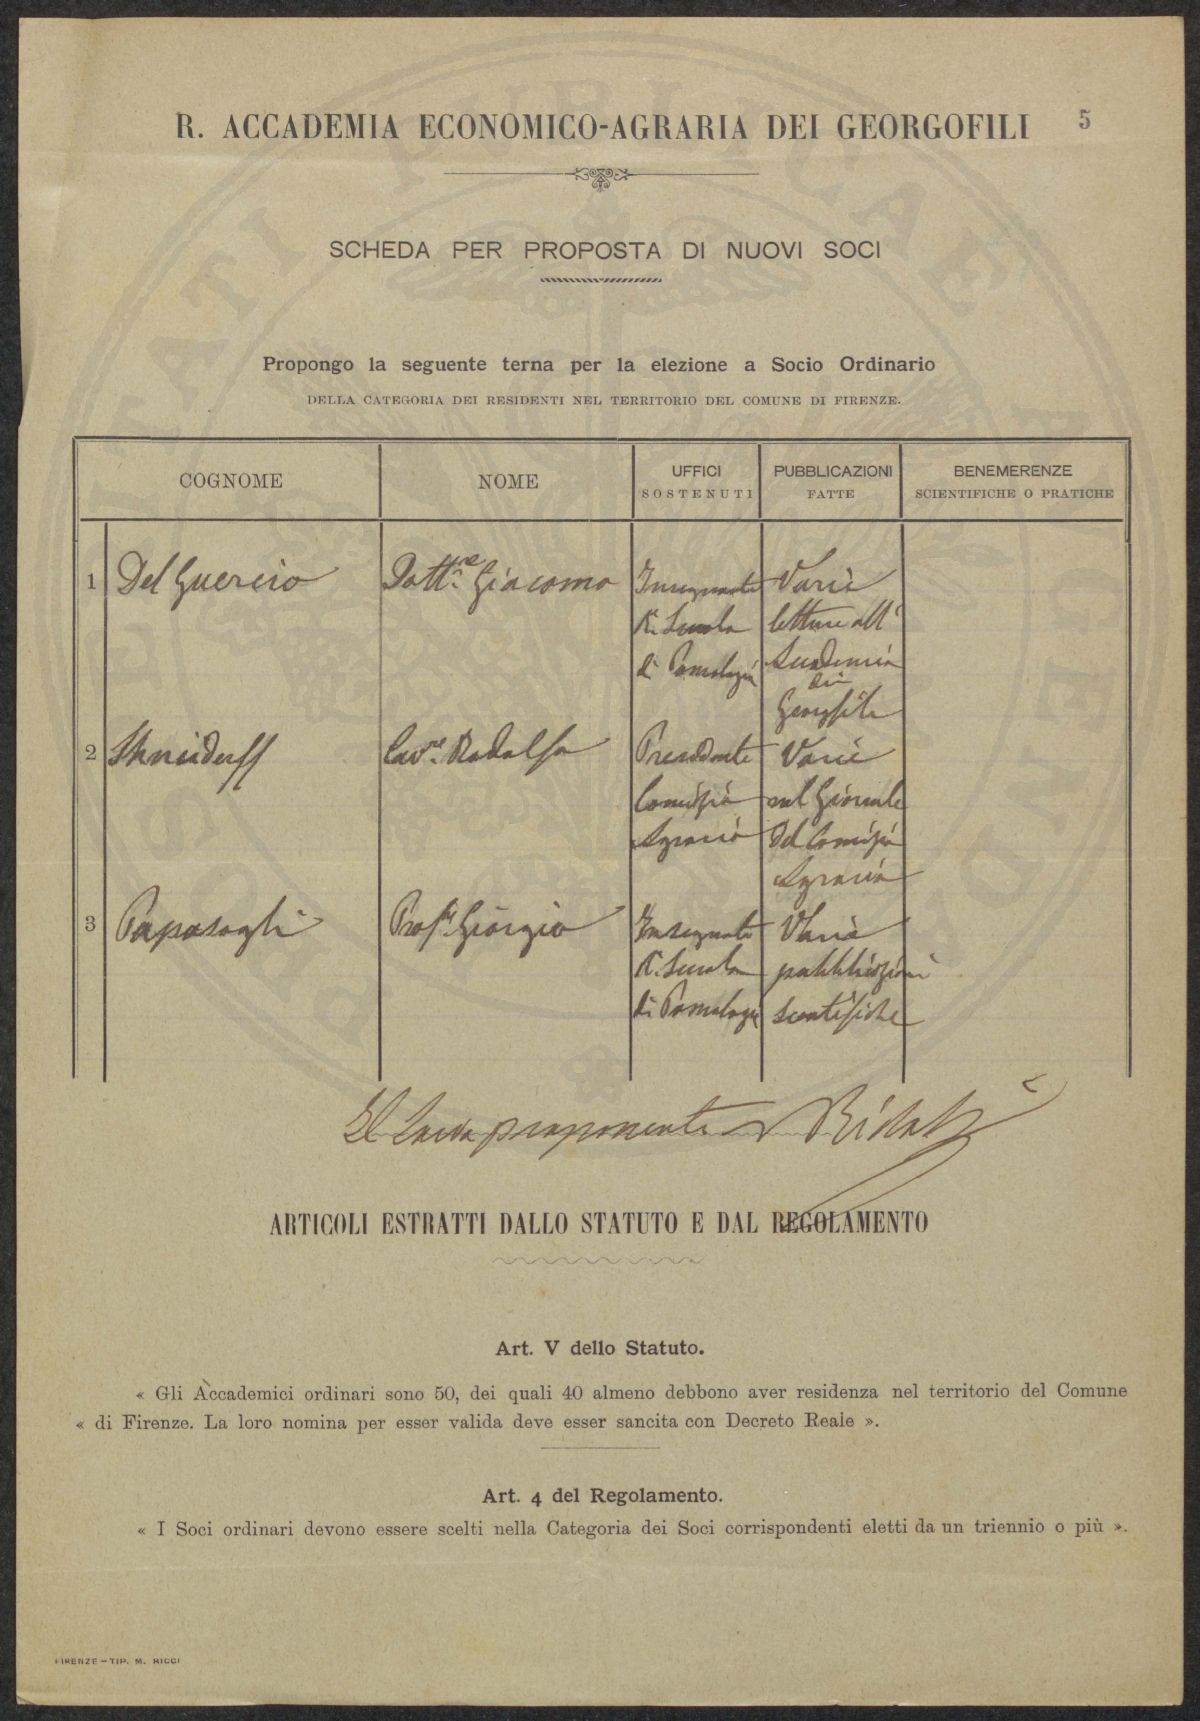 R. ACCADEMIA ECONOMICO-AGRARIA DEI GEORGOFILI
5
SCHEDA PER PROPOSTA DI NUOVI SOCI
Propongo la seguente terna per la elezione a Socio Ordinario
DELLA CATEGORIA DEI RESIDENTI NEL TERRITORIO DEL COMUNE DI FIRENZE.
COGNOME NOME UFFICI SOSTENUTI PUBBLICAZIONI FATTE BENEMERENZE SCIENTIFICHE O PRATICHE
1 Del Guercio Dott.re Giacomo Insegnante Varie
R. Scuola letture all'
di Pomologia Accademia
dei
Georgofili
2 Cav.re Rodolfo Presidente Varie
Comizio nel Giornale
Agrario del Comizio
Agrario
3 Papasogli Prof. Giorgio Insegnante Varie
R. Scuola pubblicazioni
di Pomologia scientifiche
Il Socio proponente
ARTICOLI ESTRATTI DALLO STATUTO E DAL REGOLAMENTO
Art. V dello Statuto.
« Gli Accademici ordinari sono 50, dei quali 40 almeno debbono aver residenza nel territorio del Comune
« di Firenze. La loro nomina per esser valida deve esser sancita con Decreto Reale ».
Art. 4 del Regolamento.
« I Soci ordinari devono essere scelti nella Categoria dei Soci corrispondenti eletti da un triennio o più ».
FIRENZE — TIP. M. RICCI